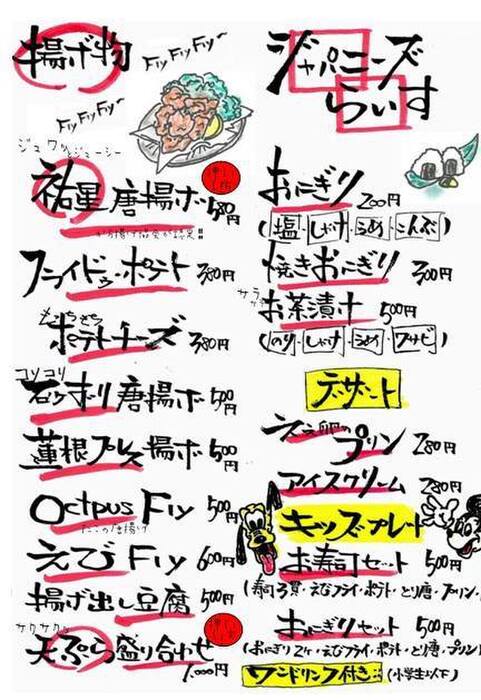 揚げ物
Fly Fly Fly~
Fly Fly Fly~
ジュワッとジューシー
祐星唐揚げ 580円
フライドゥ・ポテト 380円
もっちもち
ポテトチーズ 380円
コリコリ
石ずり唐揚げ 500円
蓮根プレス揚げ 500円
Octpus Fly 500円
たこの唐揚げ
えびFly 600円
揚げ出し豆腐 500円
サクサクッ
天ぷら盛り合わせ
1,000円
ジャパニーズ
らいす
おにぎり 200円
(塩・しゃけ・うめ・こんぶ)
焼きおにぎり 300円
サラサラ
お茶漬け 500円
(のり・しゃけ・うめ・ワサビ)
デザート
プリン 280円
アイスクリーム 280円
キッズプレート
お寿司セット 500円
(寿司3貫・えびフライ・ポテト・とり唐・プリン)
おにぎりセット 500円
(おにぎり2ケ・えびフライ・ポテト・とり唐・プリン)
ワンドリンク付き!! (小学生以下)